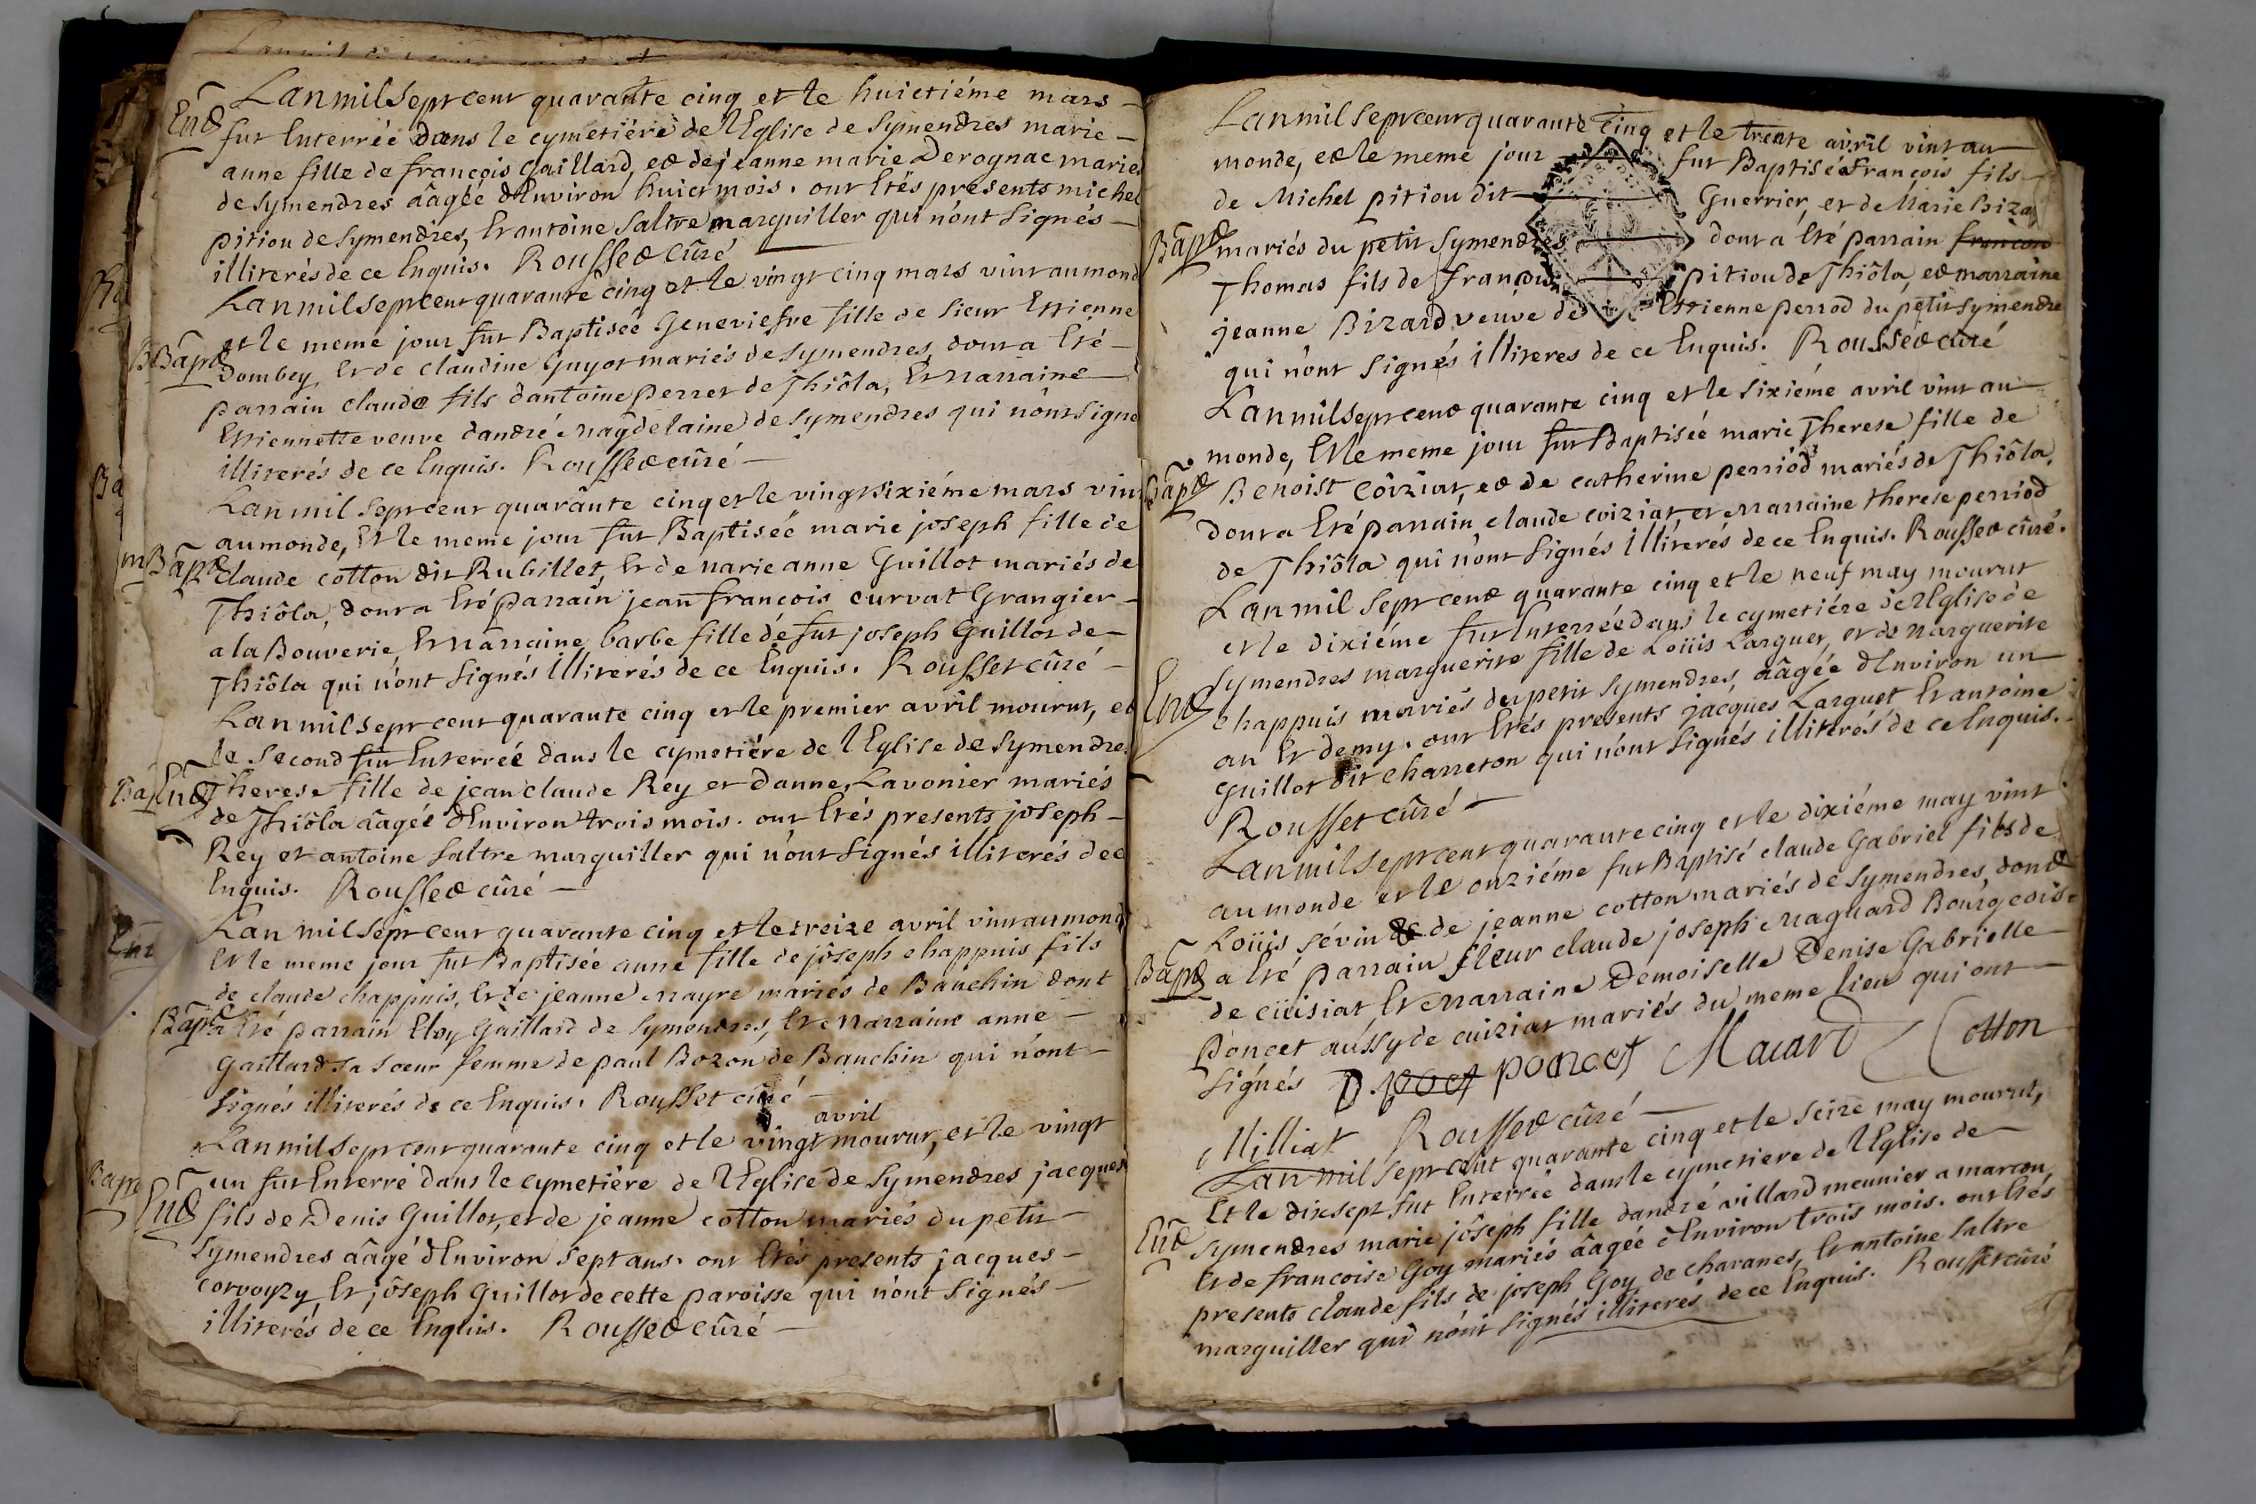 Lan mil sept cent quarante cinq et le huictiéme mars
Ent
fut Enterrée dans le cymetiére de lEglise de Symendres marie
anne fille de françois Gaillard, et de jeanne marie Derognac mariés
de Symendres ââgée dEnviron huict mois. ont Etés presents michel
pitiou de Symendres, Et antoine Saltre marguiller qui n'ont Signés
illiterés de ce Enquis. Rousset cûré
Lan mil sept cent quarante cinq et le vingt cinq mars vint au mond
et le meme jour fut Baptisée Geneviefve fille de Sieur Estienne
Bapt
Dombey, Et de claudine Guyot mariés de Symendres, dont a Eté
parrain claude fils dantoine perret de Thiôla, Et Marraine
Estiennette veuve dandré Magdelaine de Symendres qui n'ont Signé
illiterés de ce Enquis. Rousset cûré
Lan mil sept cent quarânte cinq et le vingt sixiéme mars vint
au monde, Et le meme jour fut Baptisée marie joseph fille de
Bapt
claude cotton dit Rubillet, Et de Marie anne Guillot mariés de
Thiôla, dont a Eté parrain jean françois curvat Grangier
a la Bouverie, Et Marraine barbe fille de fut joseph Guillot de
Thiôla qui n'ont Signés illiterés de ce Enquis. Rousset cûré
Lan mil sept cent quarante cinq et le premier avril mourut, et
le Second fut Enterrée dans le cymetiére de lEglise de Symendres
Ent
Therese fille de jean claude Rey et danne Lavonier mariés
de Thiôla ââgée dEnviron trois mois. ont Etés presents joseph
Rey et antoine Saltre marguiller qui n'ont Signés illiterés de ce
Enquis. Rousset cûré
Lan mil sept cent quarante cinq et le treize avril vint au mond
Et le meme jour fut Baptisée anne fille de jôseph chappuis fils
de claude chappuis, Et de jeanne Mayre mariés de Banchin dont
Bapt
a Eté parrain Eloy Gaillard de Symendres, Et Marraine anne
Gaillard sa soeur femme de paul Bozon de Banchin qui n'ont
Signés illiterés de ce Enquis. Rousset cûré
avril
Lan mil sept cent quarante cinq et le vingt mourut, et le vingt
un fut Enterré dans le cymetiére de lEglise de Symendres jacques
Ent
fils de Denis Guillot, et de jeanne cotton mariés du petit
Symendres ââgé dEnviron Sept ans. ont Etés presents jacques
corvoyzy Et jôseph Guillot de cette paroisse qui n'ont Signés
illiterés de ce Enquis. Rousset cûré
Lan mil sept cent quarante cinq et le trente avril vint au
monde, et le meme jour fut Baptisé françois fils
de Michel pitiou dit Guerrier, et de Marie Biza
Bapt
mariés du petit Symendres dont a Eté parrain françois
Thomas fils de françois pitiou de Thiôla, et marraine
jeanne Bizard veuve de Estienne perrod du petit Symendre
qui n'ont Signés illiteres de ce Enquis. Rousset cûré
Lan mil sept cent quarante cinq et le Sixiéme avril vint au
monde, Et le meme jour fut Baptisée marie Therese fille de
Bapt
Benoist Coiziat, et de catherine perriod mariés de Thiôla,
dont a Eté parrain claude coiziat et Marraine therese perriod
de Thiôla qui n'ont Signés illiterés de ce Enquis. Rousset cûré.
Lan mil sept cent quarante cinq et le neuf may mourut
et le dixiéme fut Enterrée dans le cymetiére de lEglise de
Symendres marguerite fille de Loüis Larguet, et de Marguerite
Ent
chappuis mariés du petit Symendres, ââgée dEnviron un
an Et demy. ont Etés presents jacques Larguet Et antoine
Guillot dit charreton qui n'ont Signés illiterés de ce Enquis.
Rousset cûré
Lan mil sept cent quarante cinq et le dixiéme may vint
au monde et le onziéme fut Baptisé claude Gabriel fils de
Loüis Sévin & de jeanne cotton mariés de Symendres, dont
Bapt
a Eté parrain Sieur claude joseph Maguard Bourgeois
de cüisiat Et Marraine Demoiselle Denise Gabrielle
poncet aussy de cuiziat mariés du meme lieu qui ont
Signés D. poncet Macard Cotton
Milliat Rousset cûré
Lan mil sept cent quarante cinq et le Seize may mourut,
Et le dixsept fut Enterrée dans le cymetiere de lEglise de
Ent
Symendres marie jôseph fille dandré villard meunier a marcon,
Et de francoise Goy mariés ââgée dEnviron trois mois. ont Etés
presents claude fils de joseph Goy de chavanes, Et antoine Saltre
marguiller qui n'ont Signés illiterés de ce Enquis. Rousset cûré